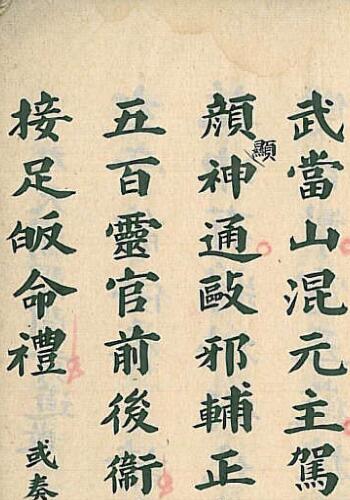 武當山混元主駕
顏神通毆邪輔正
顯
五百靈官前後衞
接足皈命禮 或奏